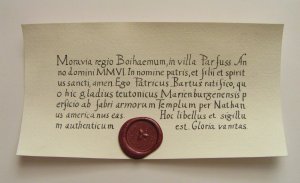 Moravia regio Boihaemum, in villa Parfuss An
no domini MMVI. In nomine patris, et filii et spirit
us sancti, amen Ego Patricus Bartus ratifico, qu
o hic gladius teutonicus Marienburgenensis p
erficio ab fabri armorum Templum per Nathan
us americanus eas. Hoc libellus et sigillu
m authenticum est. Gloria vanitas